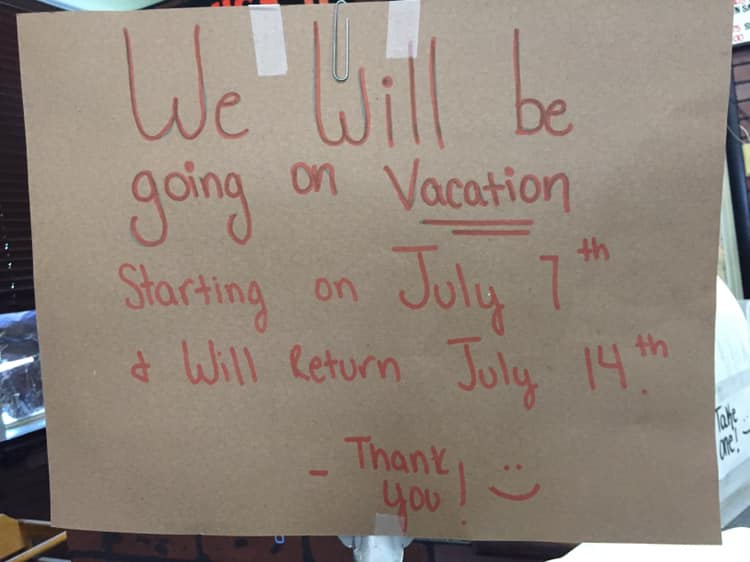 We Will be
going on Vacation
Starting on July 7th
& Will Return July 14th.
- Thank
you! :)
Take
one!